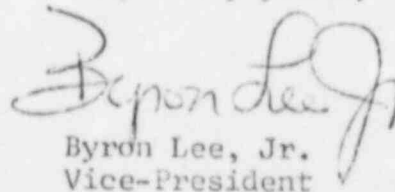 Byron Lee Jr
Byron Lee, Jr.
Vice-President